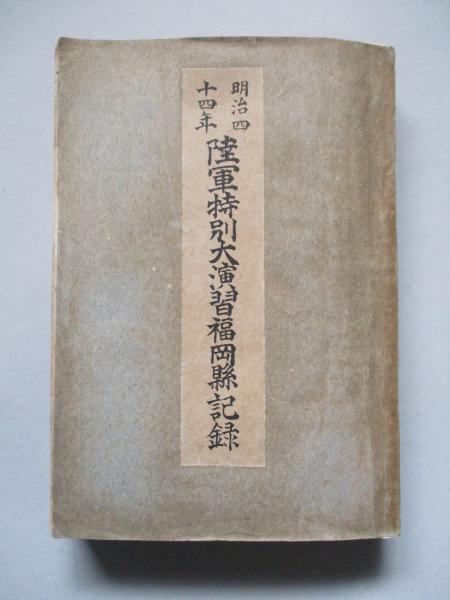 明治四
十四年
陸軍特別大演習福岡縣記録